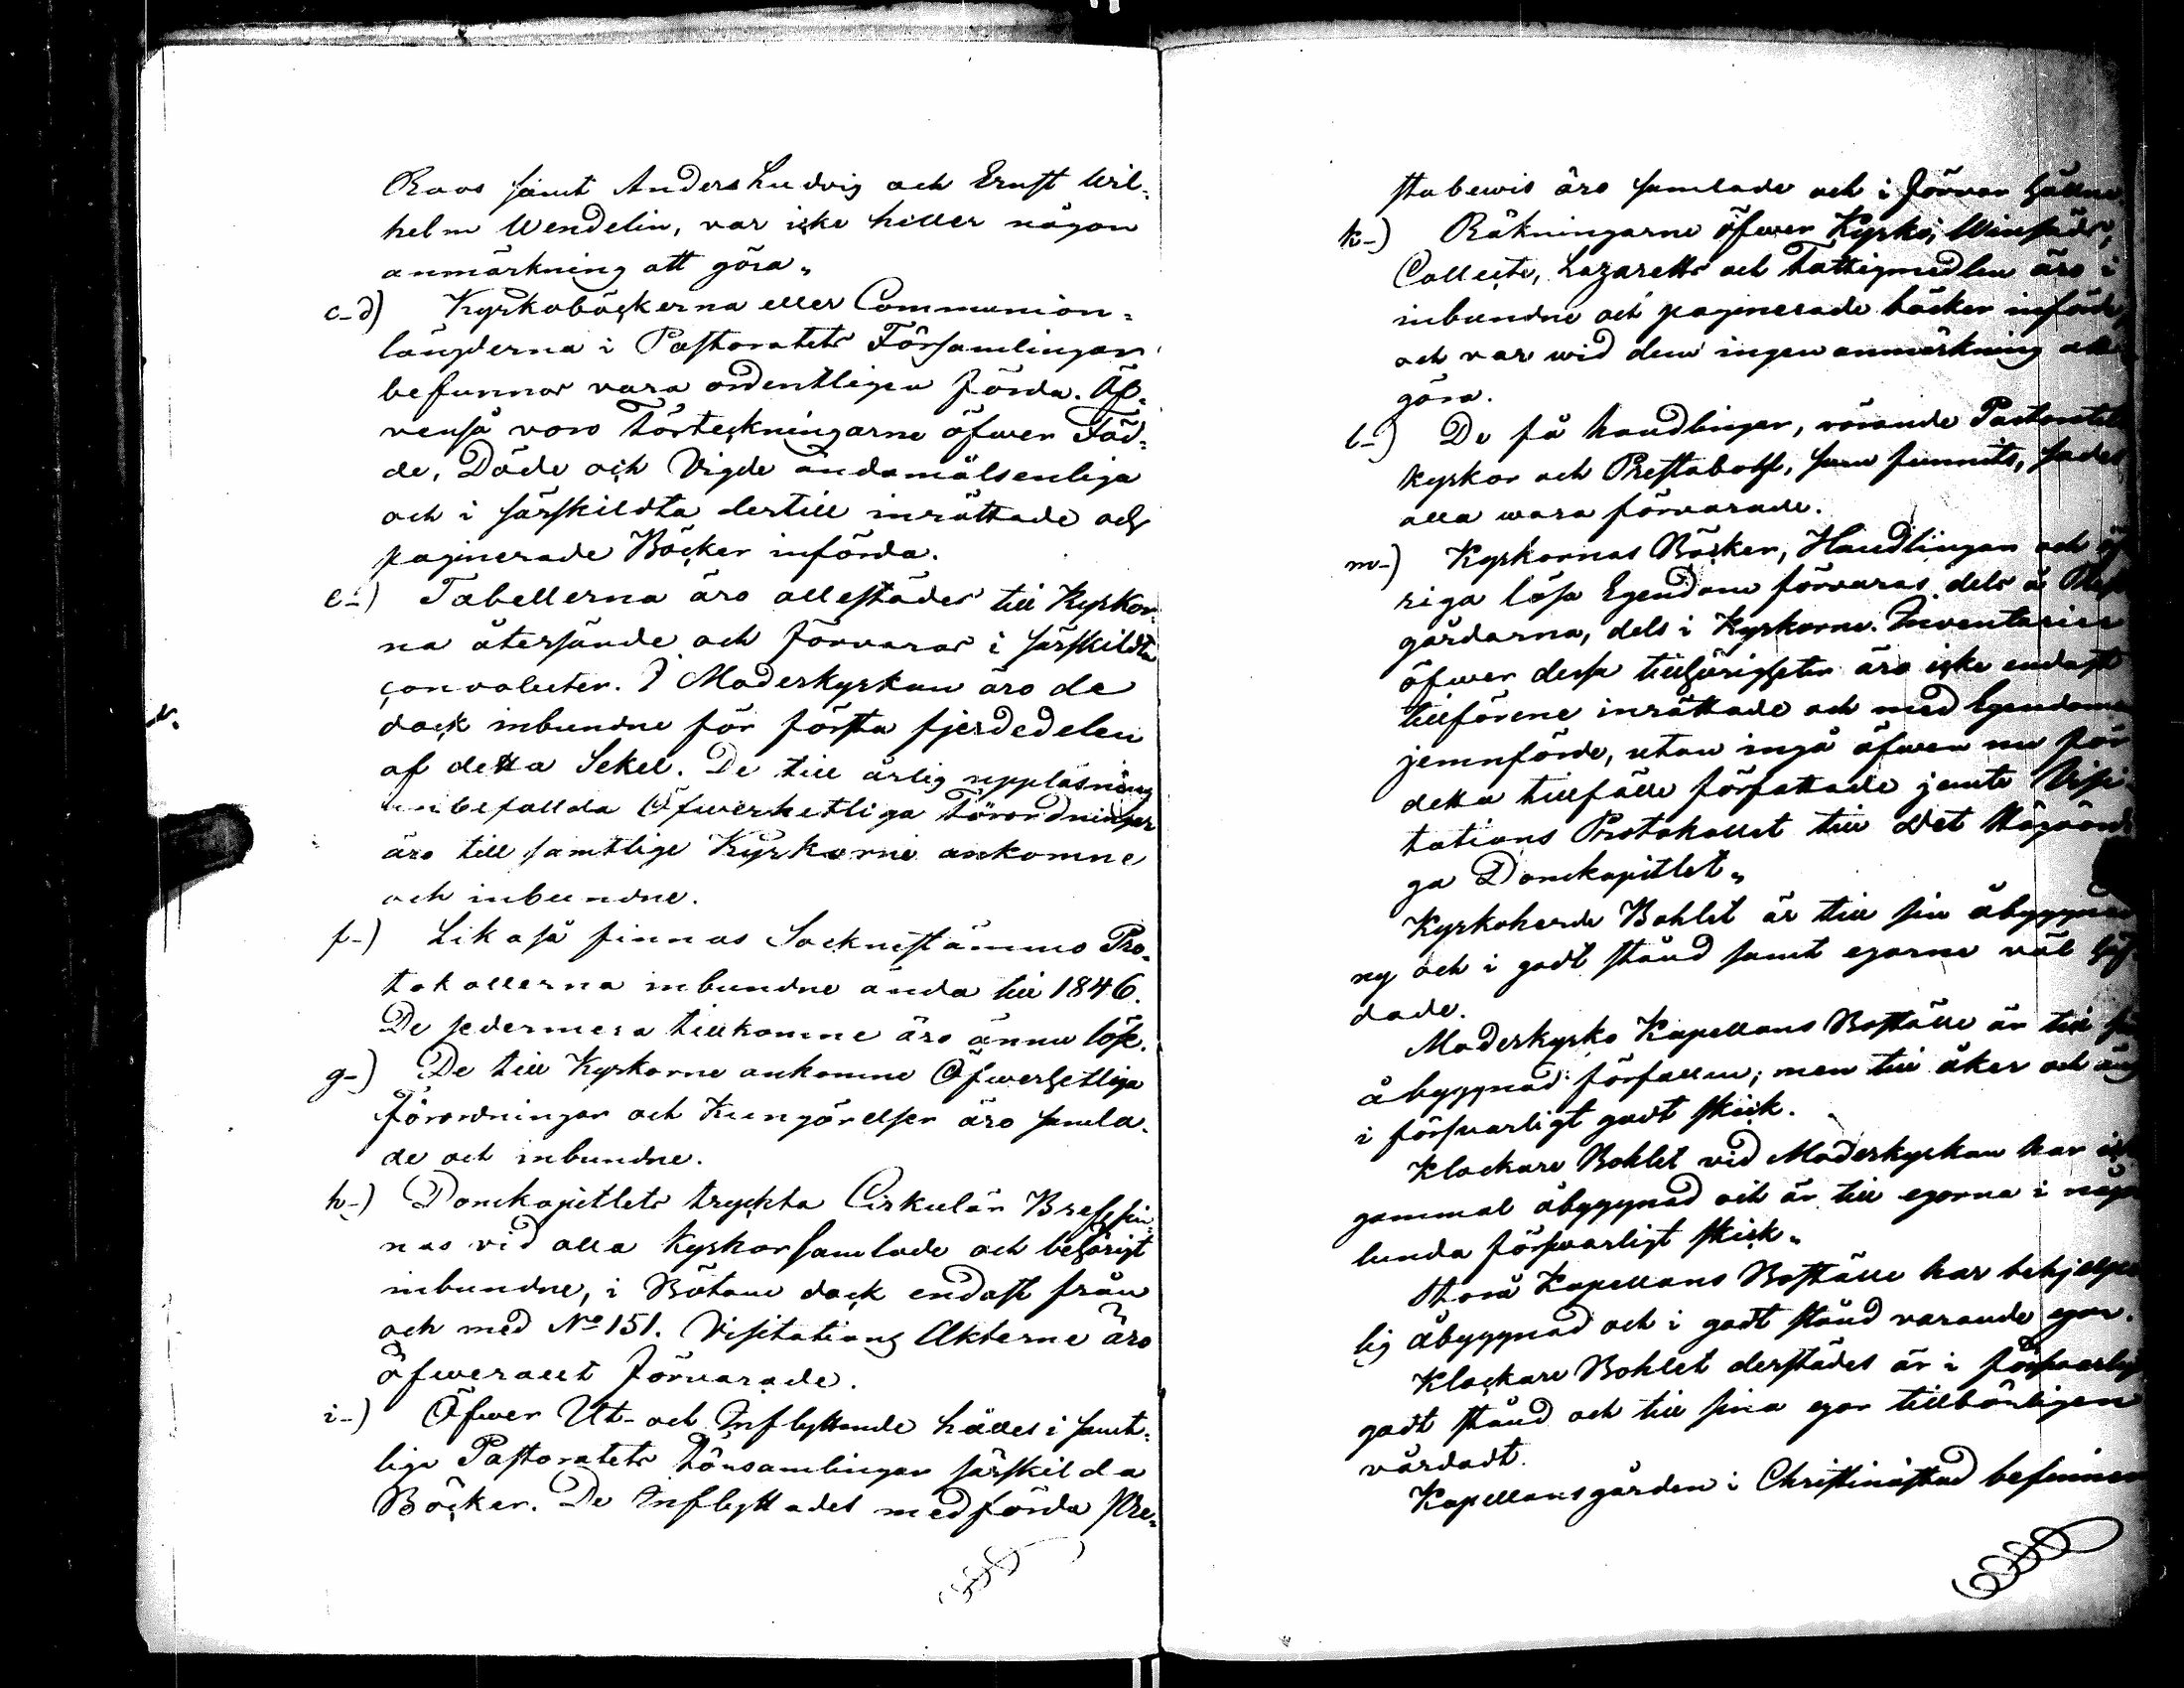 Roos samt Anders Ludvig och Ernst Wil-
helm Wendelin, var icke heller någon
anmärkning att göra.
c-d) Kyrkoböckerna eller Communion-
längderna i Pastoratets Församlingar
befunnos vara ordentligen förda. Äf-
venså voro Förteckningarne öfwer Föd-
de, Döde och Vigde ändamålsenliga
och i särskildta dertill inrättade och
paginerade Böcker införda.
e-) Tabellerna äro allestädes till Kyrkor-
na återsände och förvaras i särskildta
convoluter. I Moderkyrkan äro de
dock inbundne för första fjerdedelen
af detta Sekel. De till årlig uppläsning
anbefallda Öfwerhetliga Förordningar
äro till samtlige Kyrkorne ankomne
och inbundne.
f-) Likaså finnas Sockenstämmo Pro-
tokollerna inbundne ända till 1846.
De sedermera tillkomne äro ännu löse.
g-) De till Kyrkorne ankomne Öfwerhetliga
Förordningar och Kungörelser äro samla-
de och inbundne.
h-) Domkapitlets tryckta Cirkulär Bref fin-
nas vid alla Kyrkor samlade och behörigt
inbundne, i Bötom dock endast från
och med No 151. Visitations Akterne äro
öfwerallt förvarade.
i-) Öfwer Ut- och Inflyttande hålles i samt-
lige Pastoratets Församlingar särskilda
Böcker. De Inflyttades medförda Pre-
stabewis äro samlade och i förvar hållne.
k-) Räkningarne öfwer Kyrko, Winsäds,
Collecte, Lazaretts och Fattigmedlen äro i
inbundne och paginerade böcker införde,
och var wid dem ingen anmärkning att
göra.
l-) De få handlingar, rörande Pastoratets
kyrkor och Prestabohl, som funnits, sades
alla wara förvarade.
m-) Kyrkornas Böcker, Handlingar och öf-
riga lösa Egendom förvaras dels å Prest
gårdarna, dels i Kyrkorne. Inventarier
öfwer dessa tillhörigheter äro icke endast
tillförene inrättade och med Egendomen
jemnförde, utan ingå äfwen nu för
detta tillfälle författade jemte Visi-
tations Protokollet till det Högvördi
ga Domkapitlet.
Kyrkoherde Bohlet är till sin åbyggnad
ny och i godt stånd samt egorne väl häf-
dade.
Moderkyrko Kapellans Boställe är till sin
åbyggnad förfallen; men till åker och äng
i försvarligt godt skick.
Klockare Bohlet vid Moderkyrkan har icke
gammal åbyggnad och är till egorna i någor
lunda försvarligt skick.
Storå Kapellans Boställe har behjelpe
lig åbyggnad och i godt stånd varande egor.
Klockare Bohlet derstädes är i försvarligt
godt stånd och till sina egor tillbörligen
vårdadt.
Kapellansgården i Christinæstad befinner